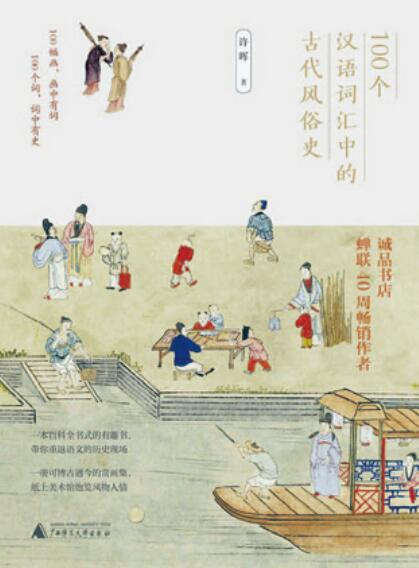 100个
汉语词汇中的
古代风俗史
许晖 著
100幅画，画中有词
100个词，词中有史
诚品书店
蝉联40周畅销作者
一本百科全书式的有趣书，
带你重返语文的历史现场
一册可博古通今的赏画集，
纸上美术馆饱览风物人情
广西师范大学出版社